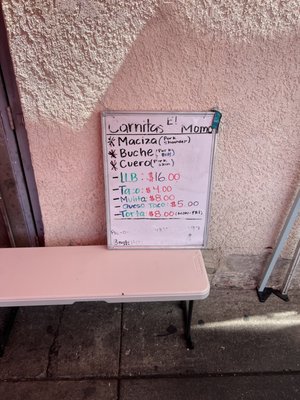 Carnitas El Momo
* Maciza (Pork Shoulder)
* Buche (Pork Belly)
* Cuero (Pork Skin)
- LB : $16.00
- Taco : $4.00
- Mulita $8.00
- Queso Taco : $5.00
- Torta $8.00